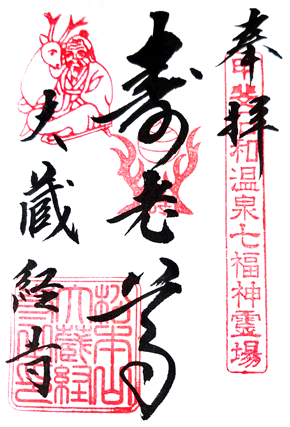 奉拝
甲斐石和温泉七福神霊場
寿老尊
大蔵経寺
松本山
大蔵経寺